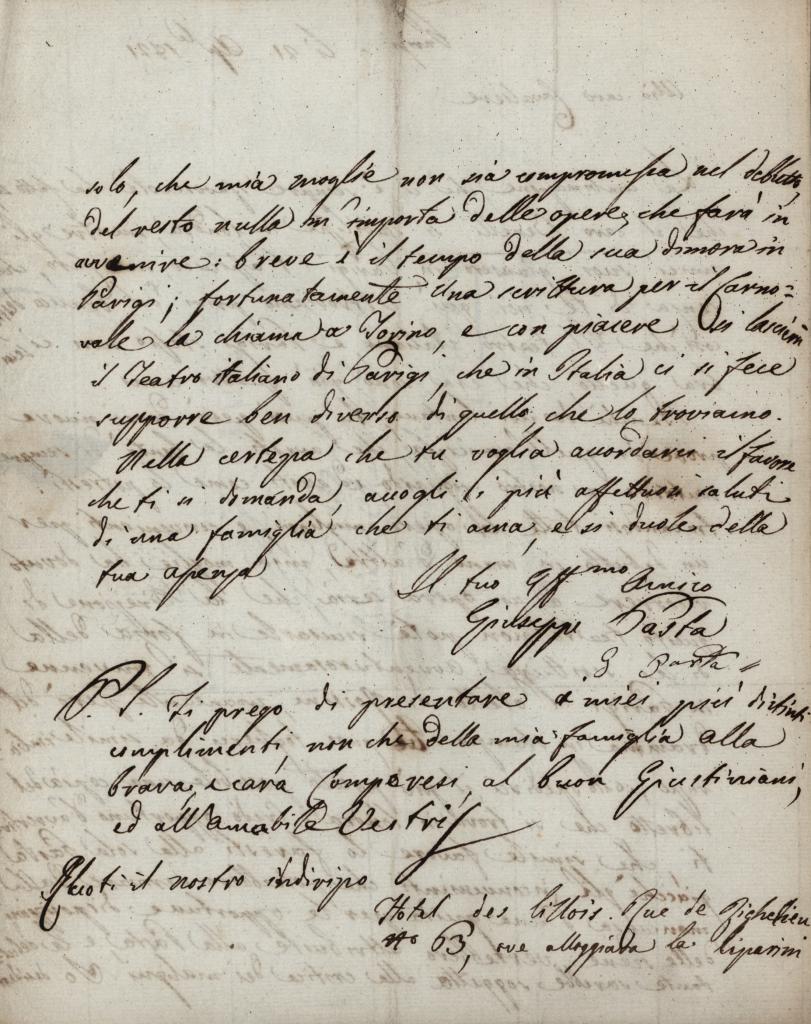 solo, che mia moglie non sia compromessa nel debutto,
del resto nulla m'importa delle opere, che farà in
avvenire: breve è il tempo della sua dimora in
Parigi; fortunatamente una scrittura per il Carno=
vale la chiama a Torino, e con piacere si lascierà
il Teatro italiano di Parigi, che in Italia ci si fece
supporre ben diverso di quello, che lo troviamo.
Nella certezza che tu voglia accordarci il favore
che ti si dimanda, accogli i più affettuosi saluti
di una famiglia che ti ama, e si duole della
tua assenza
Il tuo Aff.mo Amico
Giuseppe Pasta
G Pasta =
P. S. Ti prego di presentare i miei più distinti
complimenti, non che della mia famiglia alla
brava, e cara Camporesi, al buon Giustiniani,
ed all'amabile Vestris
Eccoti il nostro indirizzo
Hotel des Lillois. Rue de Richelieu
No 63, ove alloggiava la Liparini